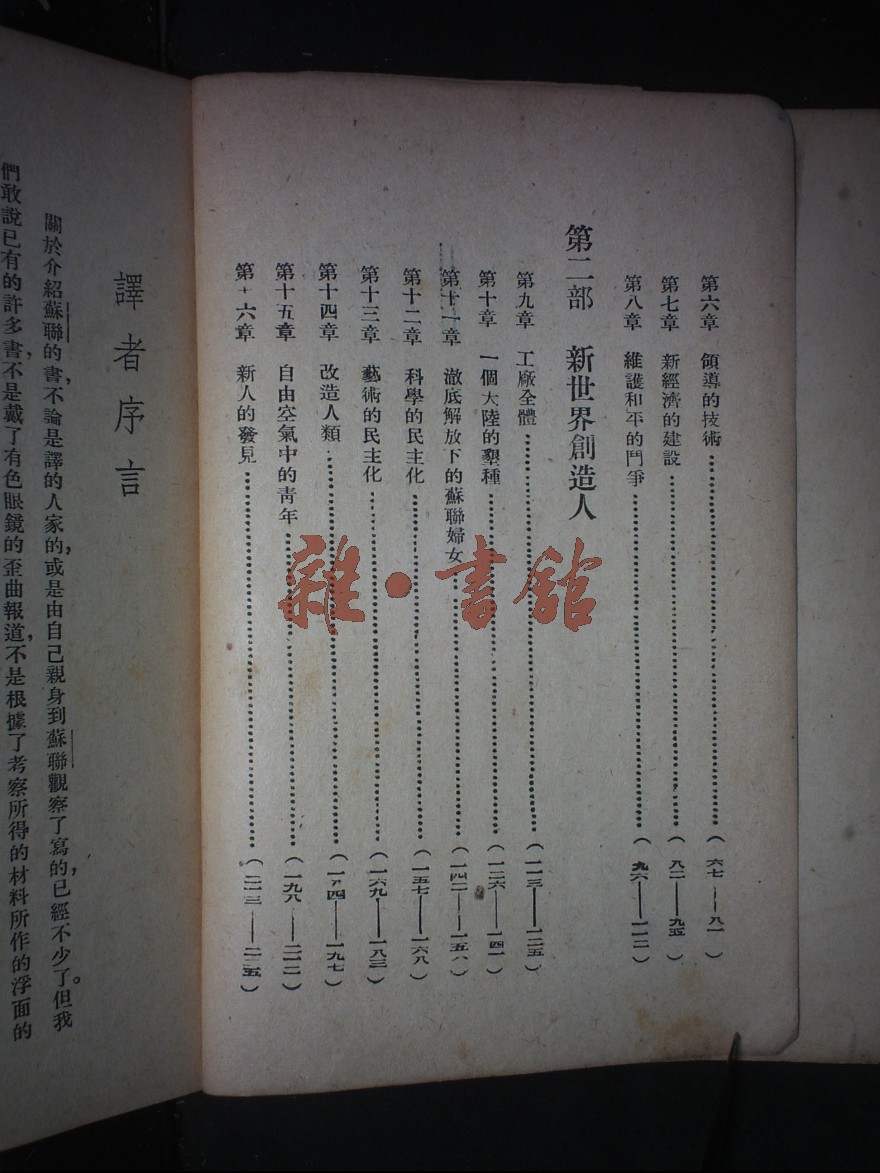 第六章 領導的技術………(六七——八一)
第七章 新經濟的建設………(八二——九五)
第八章 維護和平的鬥爭………(九六——一一二)
第二部 新世界創造人
第九章 工廠全體………(一一三——一二五)
第十章 一個大陸的墾種………(一二六——一四一)
第十一章 澈底解放下的蘇聯婦女………(一四二——一五六)
第十二章 科學的民主化………(一五七——一六八)
第十三章 藝術的民主化………(一六九——一八三)
第十四章 改造人類………(一八四——一九七)
第十五章 自由空氣中的青年………(一九八——二一二)
第十六章 新人的發見………(二一三——二二五)
譯者序言
關於介紹蘇聯的書,不論是譯的人家的,或是由自己親身到蘇聯觀察了寫的,已經不少了。但我
們敢說已有的許多書,不是戴了有色眼鏡的歪曲報道,不是根據了考察所得的材料所作的浮面的
雜·書館